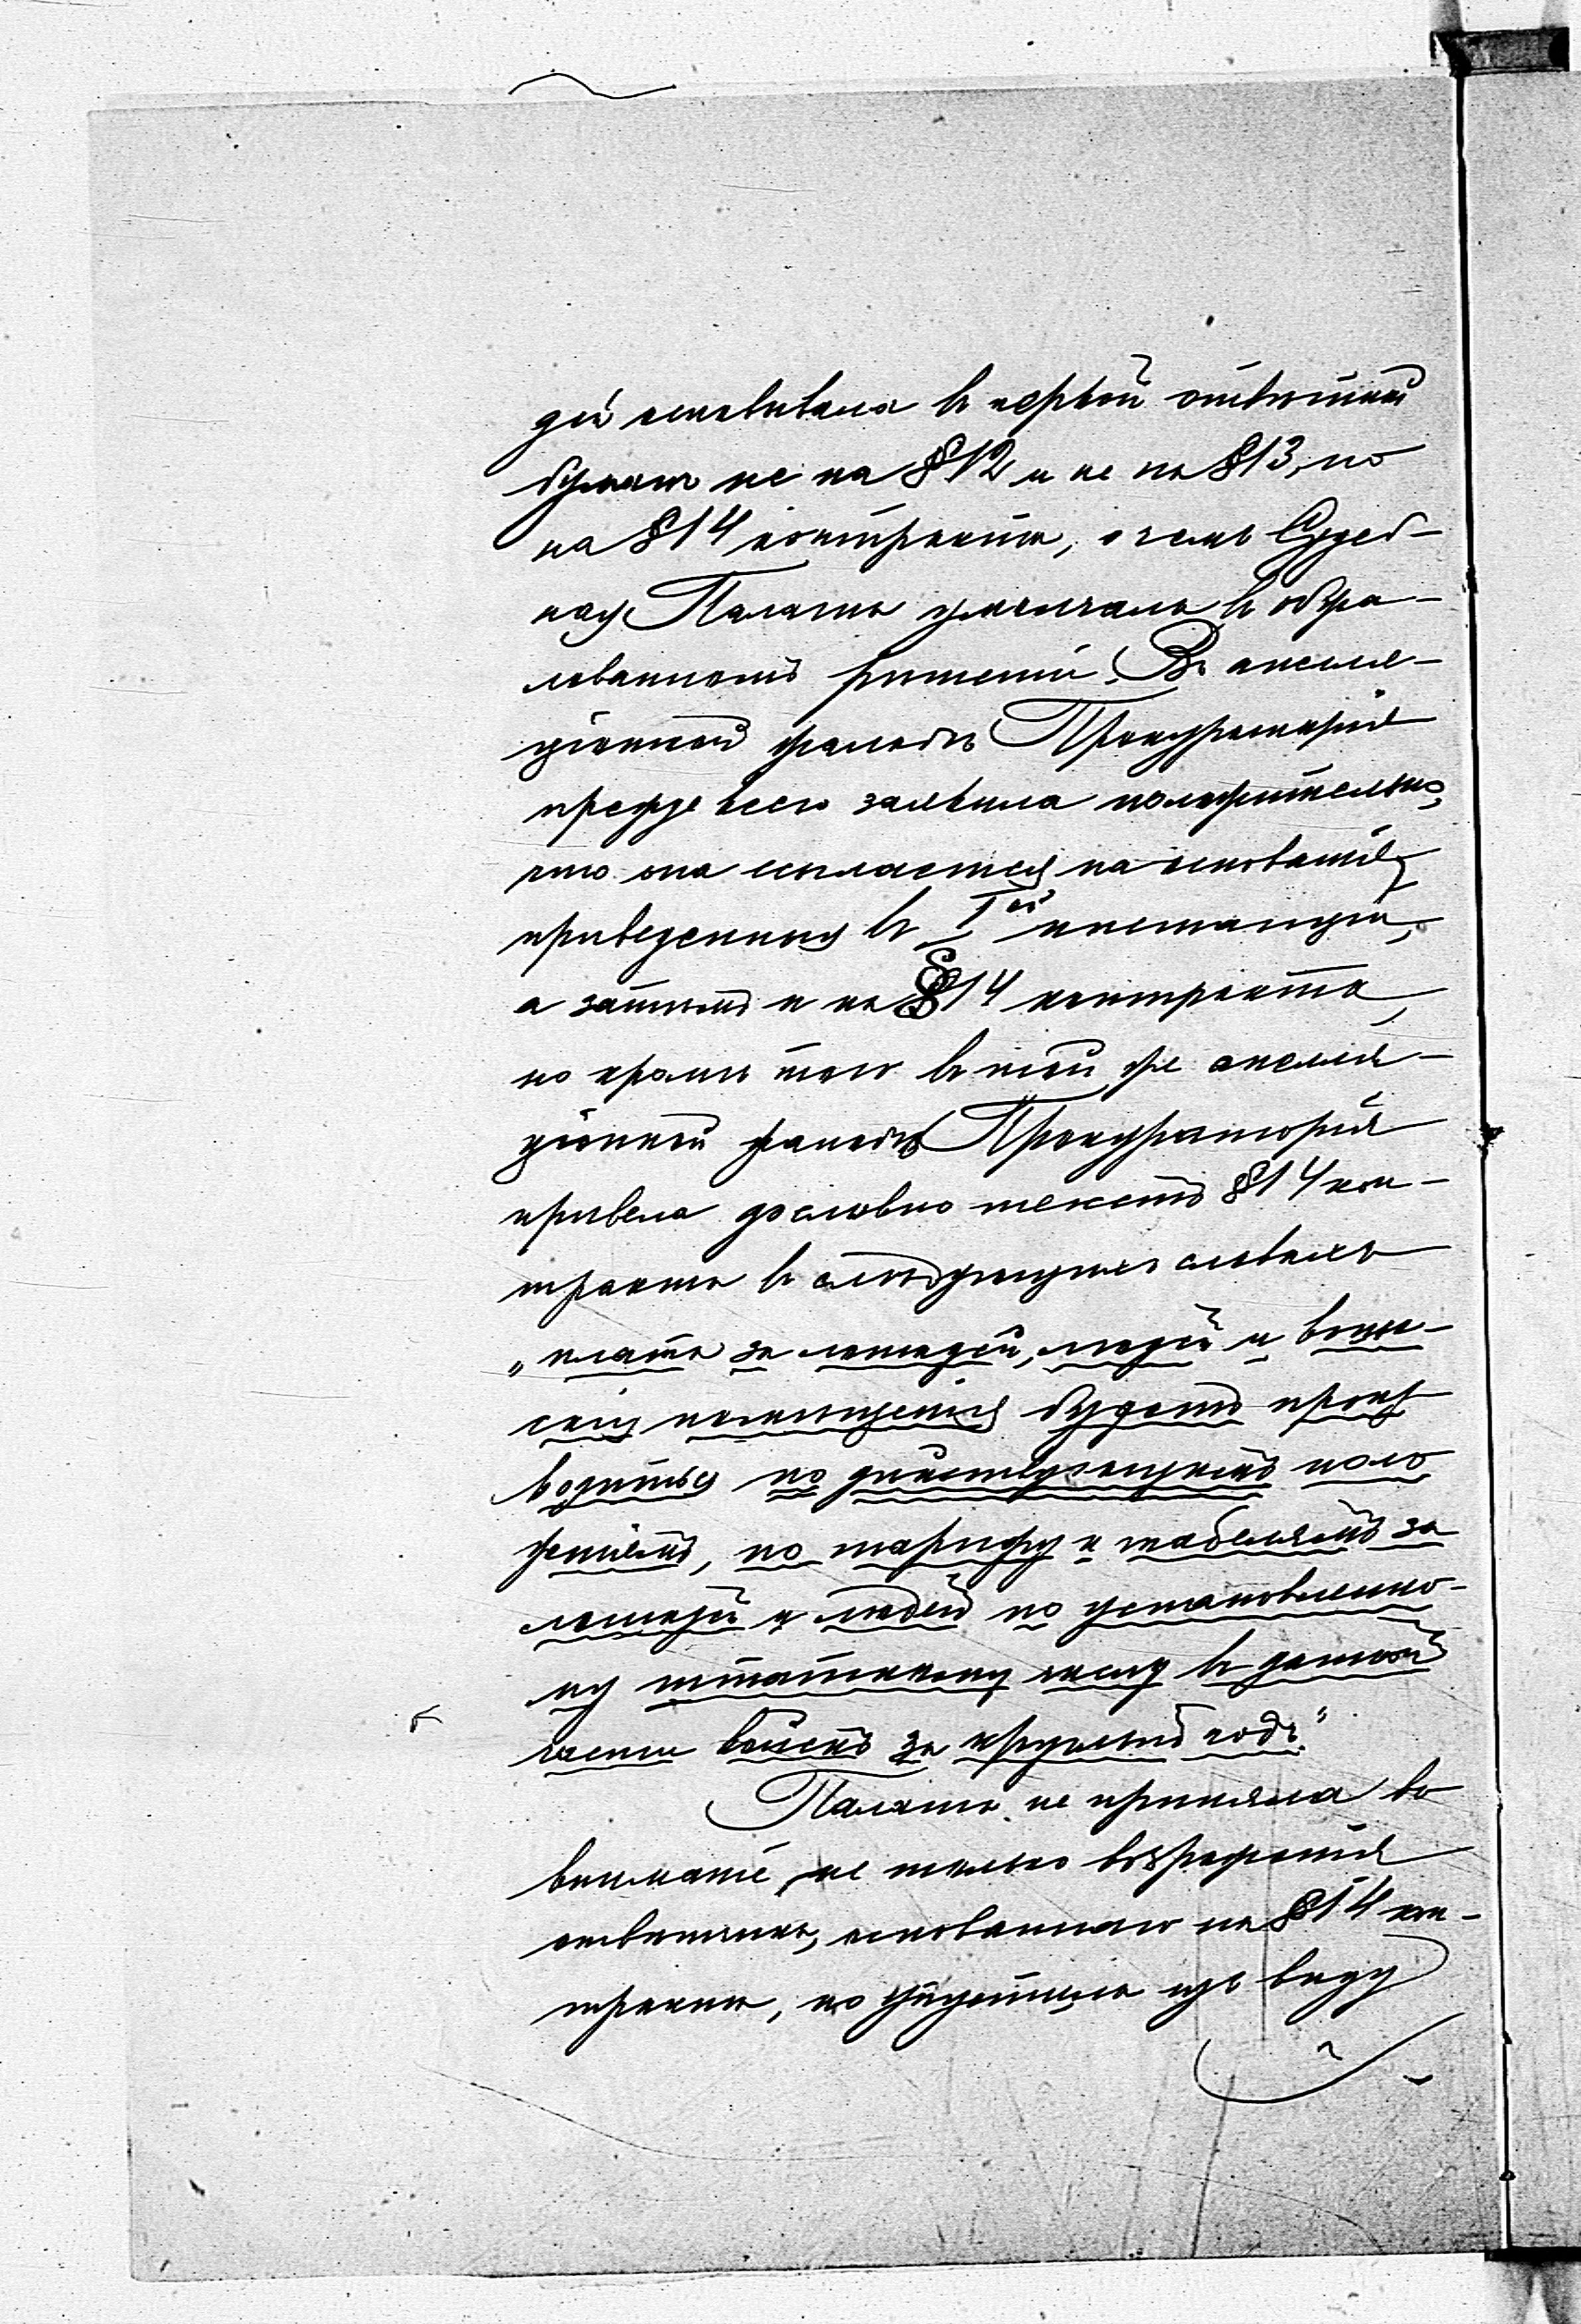 дій основывала въ первой отвѣтной
бумагѣ не на § 12 и не на § 13, но
на § 14 контракта, о чемъ Судеб-
ная Палата умолчала въ обжа-
лованномъ рѣшеніи. Въ апелля-
ціонной жалобѣ Прокураторія
прежде всего заявила положительно,
что она ссылается на основанія,
приведенныя въ Iой инстанціи,
а затѣмъ и на § 14 контракта,
но кромѣ того въ той же апелля-
ціонной жалобѣ Прокураторія
привела дословно текстъ § 14 кон-
тракта въ слѣдующихъ словахъ
„плата за лошадей, людей и воин-
скія помѣщенія будетъ произ-
водиться по дѣйствующимъ поло
женіямъ, по тарифу и табелямъ за
лошадей и людей по установленно-
му штатному числу въ данной
части войскъ за круглый годъ."
Палата не приняла во
вниманіе не только возраженія
отвѣтчика, основаннаго на § 14 кон-
тракта, но упустила изъ виду